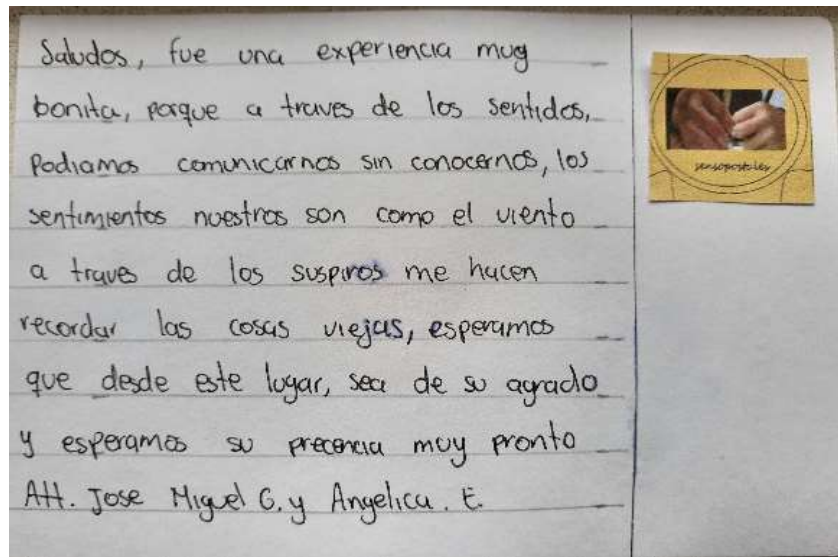 Saludos, fue una experiencia muy
bonita, porque a traves de los sentidos,
Podiamos comunicarnos sin conocernos, los
sentimientos nuestros son como el viento
a traves de los suspiros me hacen
recordar las cosas viejas, esperamos
que desde este lugar, sea de su agrado
y esperamos su precencia muy pronto
Att. Jose Miguel G. y Angelica. E.
sensopostales